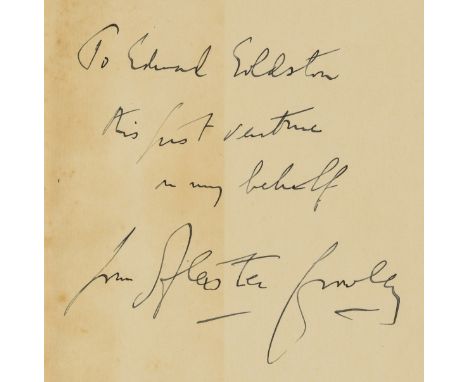 To Edward Goldston
this first venture
on my behalf
from Aleister Crowley